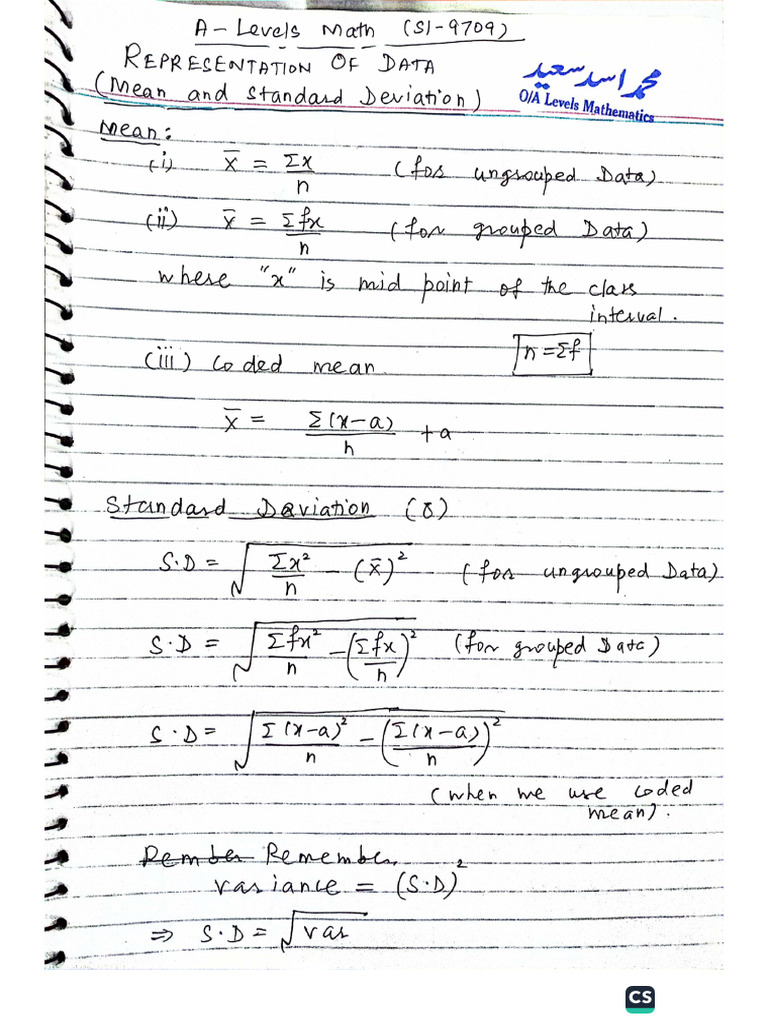 A-Levels Math (S1-9709)
REPRESENTATION OF DATA
(Mean and Standard Deviation)
محمد اسد سعید
O/A Levels Mathematics
Mean:
(i) x̄ = Σx/n (for ungrouped Data)
(ii) x̄ = Σfx/n (for grouped Data)
where "x" is mid point of the class
interval.
(iii) Coded mean
n = Σf
x̄ = Σ(x-a)/n + a
Standard Deviation (δ)
S.D = √(Σx²/n - (x̄)²) (for ungrouped Data)
S.D = √(Σfx²/n - (Σfx/n)²) (for grouped Data)
S.D = √(Σ(x-a)²/n - (Σ(x-a)/n)²)
(when we use coded
mean).
Pember Remember
variance = (S.D)²
⇒ S.D = √var
CS